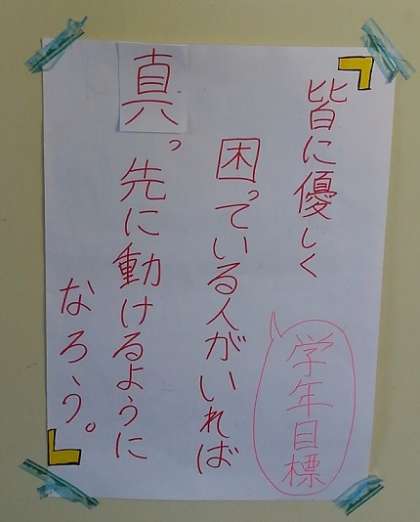 学年目標
皆に優しく
困っている人がいれば
真っ先に動けるように
なろう。